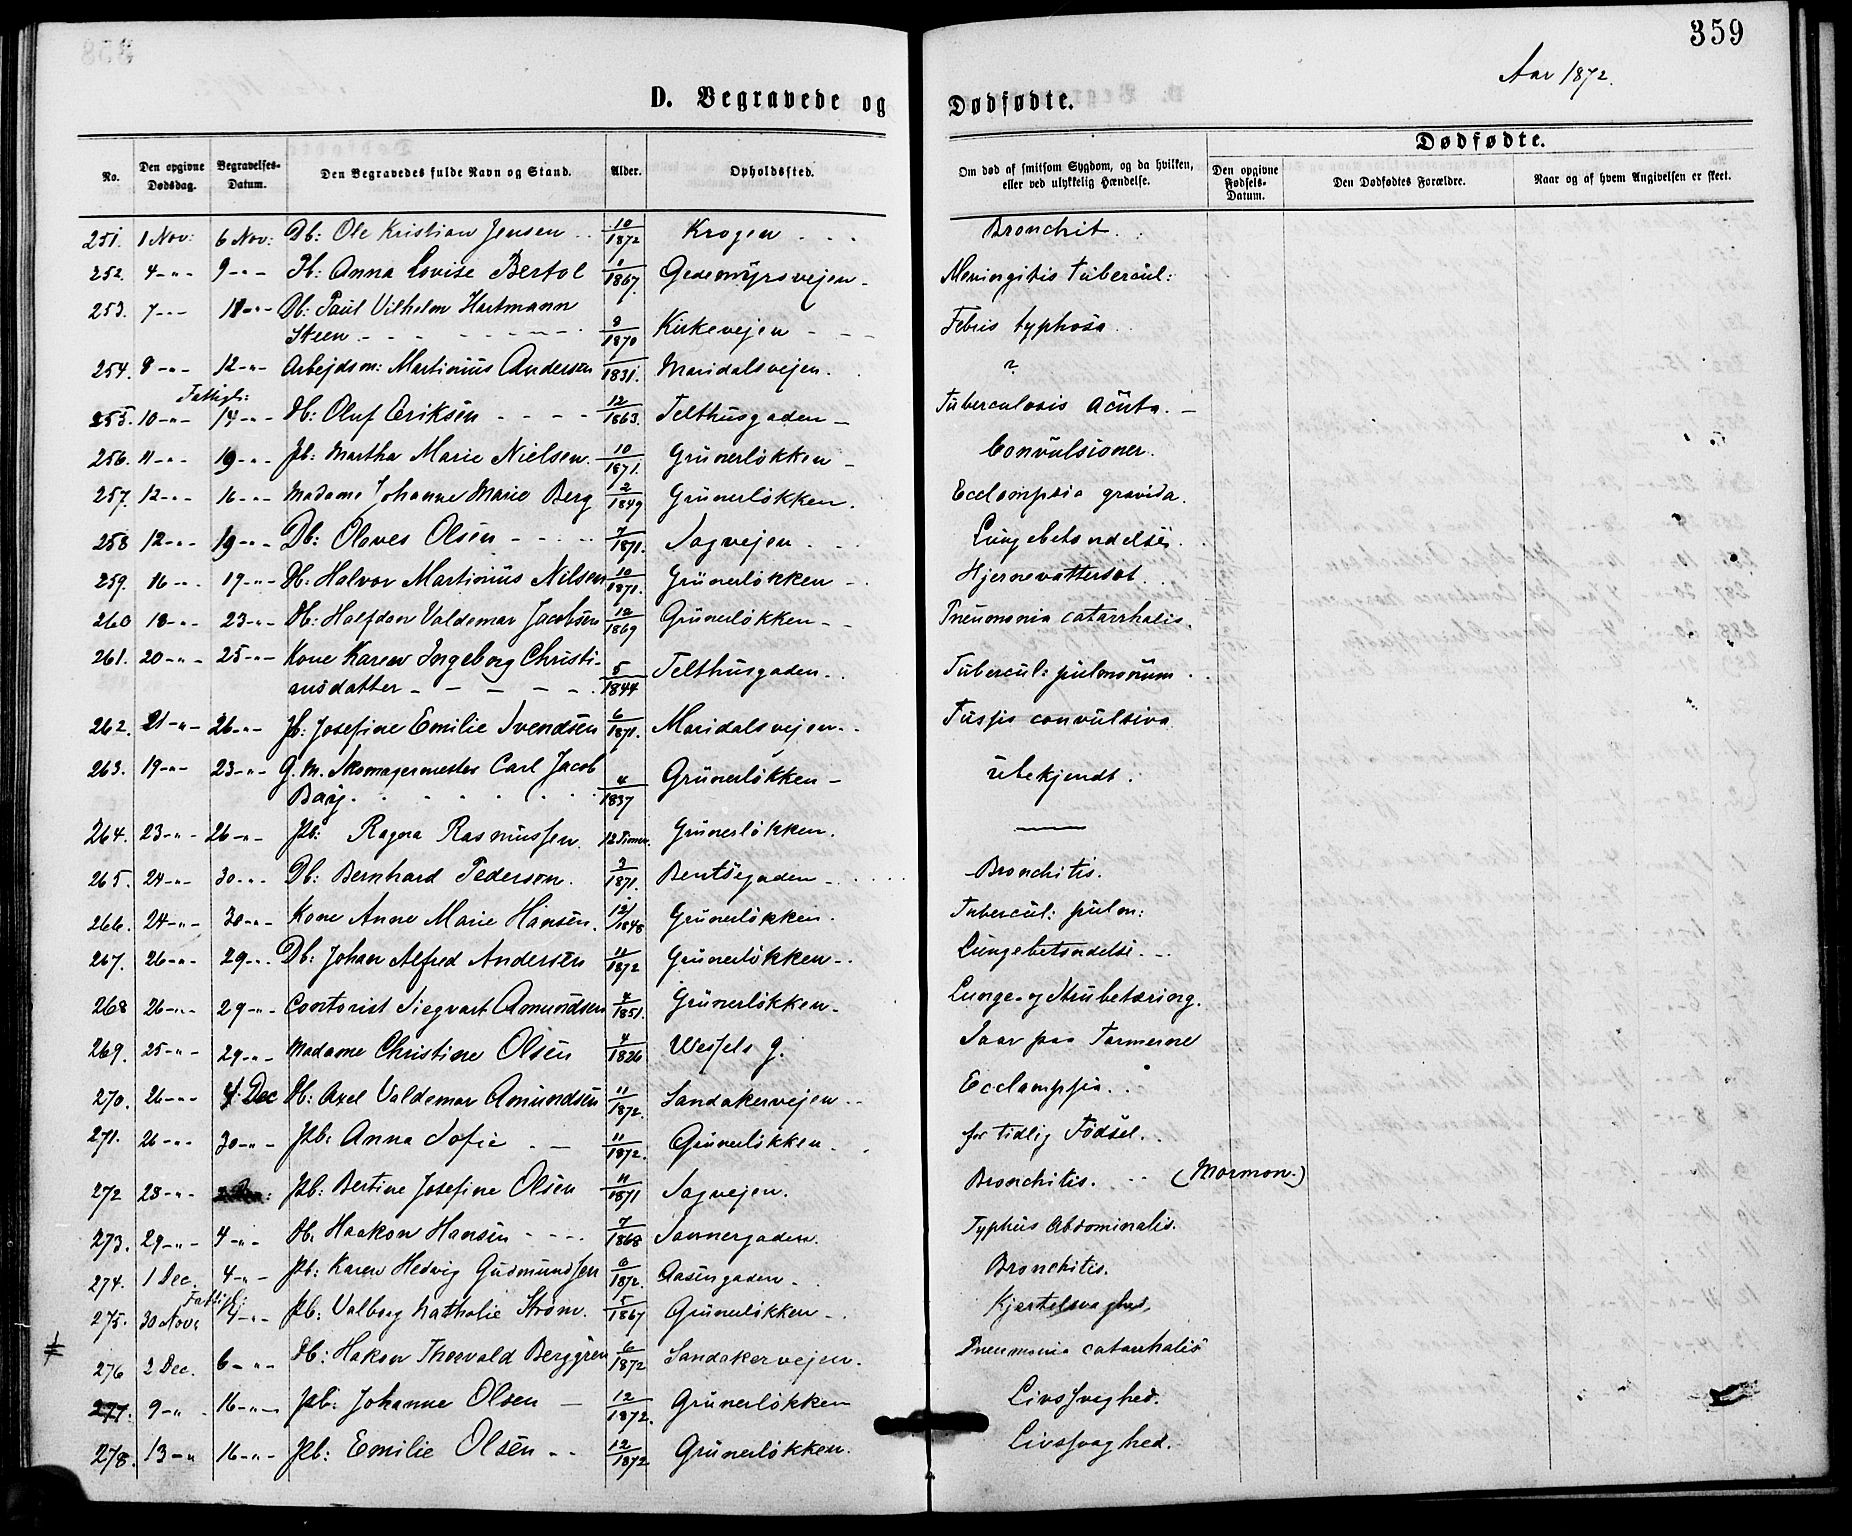 359
Aar 1872.
D. Begravede og Dødfødte.
Dødfødte.
No. Den opgivne Dødsdag. Begravelses-Datum. Den Begravedes fulde Navn og Stand. Alder. Opholdssted. Om død af smitsom Sygdom, og da hvilken, eller ved ulykkelig Hændelse. Den opgivne Fødsels-Datum. Den Dødfødtes Forældre. Naar og af hvem Angivelsen er skeet.
251. 1 Nov: 6 Nov: Db: Ole Kristian Jensen 10/1872 Krogen Bronchit.
252. 4 -"- 9 -"- Pb: Anna Lovise Bertol 1/1867. Gedemyrsvejen Meningitis tubercul:
253. 7 -"- 18 -"- Db: Paul Vilhelm Hartmann
Steen 8/1870 Kirkevejen Febris typhosa
254. 8 -"- 12 -"- Arbejdsm: Martinius Andersen 1831. Maridalsvejen. ?
Fattigl:
255. 10 -"- 14 -"- Db: Oluf Eriksen 12/1863. Telthusgaden Tuberculosis acuta.
256. 11 -"- 19 -"- Pb: Martha Marie Nielsen. 10/1871. Grünerløkken Convulsioner.
257. 12 -"- 16 -"- Madame Johanne Marie Berg 2/1849 Grünerløkken. Ecclampsia gravida.
258 12 -"- 19 -"- Db: Olaves Olsen 7/1871. Sagvejen Lungebetændelse
259. 16 -"- 19 -"- Db: Halvor Martinius Nilsen 10/1871. Grünerløkken Hjernevattersot
260 18 -"- 23 -"- Db: Halfdan Valdemar Jacobsen 10/1869 Grünerløkken Pneumonia catarrhalis.
261. 20 -"- 25 -"- Kone Karen Ingeborg Christi-
ansdatter 5/1844 Telthusgaden. Tubercul: pulmonum
262. 21 -"- 26 -"- Pb: Josefine Emilie Svendsen 6/1871. Maridalsvejen. Tussis convulsiva
263. 19 -"- 23 -"- G. M. Skomagermester Carl Jacob
4/1837 Grünerløkken ubekjendt.
264. 23 -"- 26 -"- Pb: Ragna Rasmussen 12 Timer. Grünerløkken. —
265. 24 -"- 30 -"- Db: Bernhard Pedersen. 3/1871. Bentsegaden Bronchitis.
266. 24 -"- 30 -"- Kone Anne Marie Hansen. 12/1848 Grünerløkken. Tubercul: pulm:
267. 26 -"- 29 -"- Db: Johan Alfred Andersen 11/1872 Grünerløkken Lungebetændelse.
268 26 -"- 29 -"- Contorist Siegvart Amundsen 4/1851. Grünerløkken. Lunge- og Strubetæring.
269. 25 -"- 29 -"- Madame Christine Olsen 4/1826 Wessels g. Saar paa Tarmerne
270. 26 -"- 4. Dec Db: Axel Valdemar Amundsen 11/1872. Sandakervejen Ecclampsia.
271. 26 -"- 30 -"- Pb: Anna Sofie 11/1872. Grünerløkken. for tidlig Fødsel.
272 28 -"- Pb: Bertine Josefine Olsen 11/1871 Sagvejen. Bronchitis. (Mormon.)
273. 29 -"- 4 -"- Db. Haakon Hansen 7/1868 Sannergaden. Typhus abdominalis.
274. 1 Dec. 4 -"- Pb: Karen Hedvig Gudmundsen 6/1872. Aasengaden Bronchitis.
Fattigl:
275. 30 Nov: 4 -"- Pb: Valborg Nathalie Strøm. 5/1867 Grünerløkken Kjertelsvaghed,
276 2 Dec. 6 -"- Db: Hakon Thorvald Berggren 6/1872 Sandakervejen. Pneumonia catarrhalis
277. 9 -"- 16 -"- Pb: Johanne Olsen 12/1872. Grünerløkken Livssvaghed.
278. 13 -"- 16 -"- Pb: Emilie Olsen 12/1872 Grünerløkken. Livssvaghed.